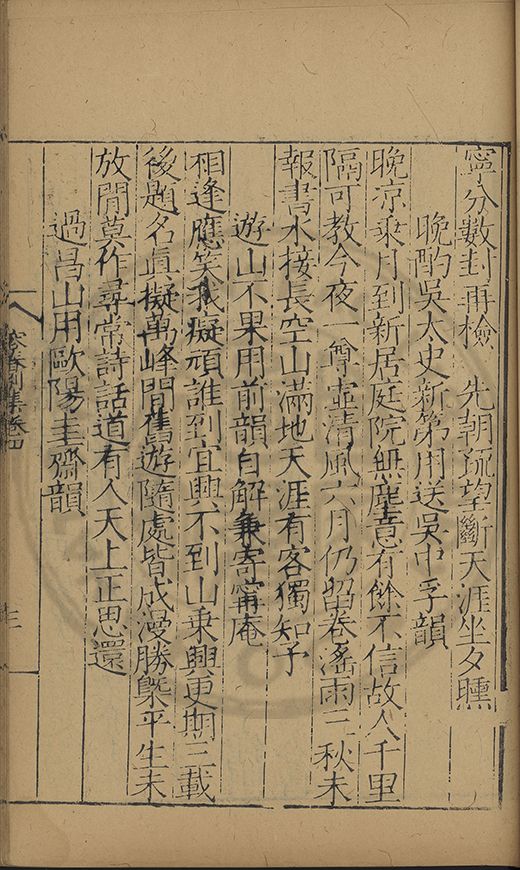 寧分數封再檢　先朝疏望斷天涯坐夕曛
晚酌吳太史新第用送吳中孚韻
晚凉乘月到新居庭院無塵意有餘不信故人千里
隔可教今夜一尊虛清風六月仍留春滛雨三秋未
報書水接長空山滿地天涯有客獨知予
遊山不果用前韻自解兼寄甯庵
相逢應笑我癡頑誰到宜興不到山乘興更期三載
後題名眞擬萬峰間舊遊隨處皆成漫勝槩平生未
放閒莫作尋常詩話道有人天上正思還
過呂山用歐陽圭齋韻
集卷四